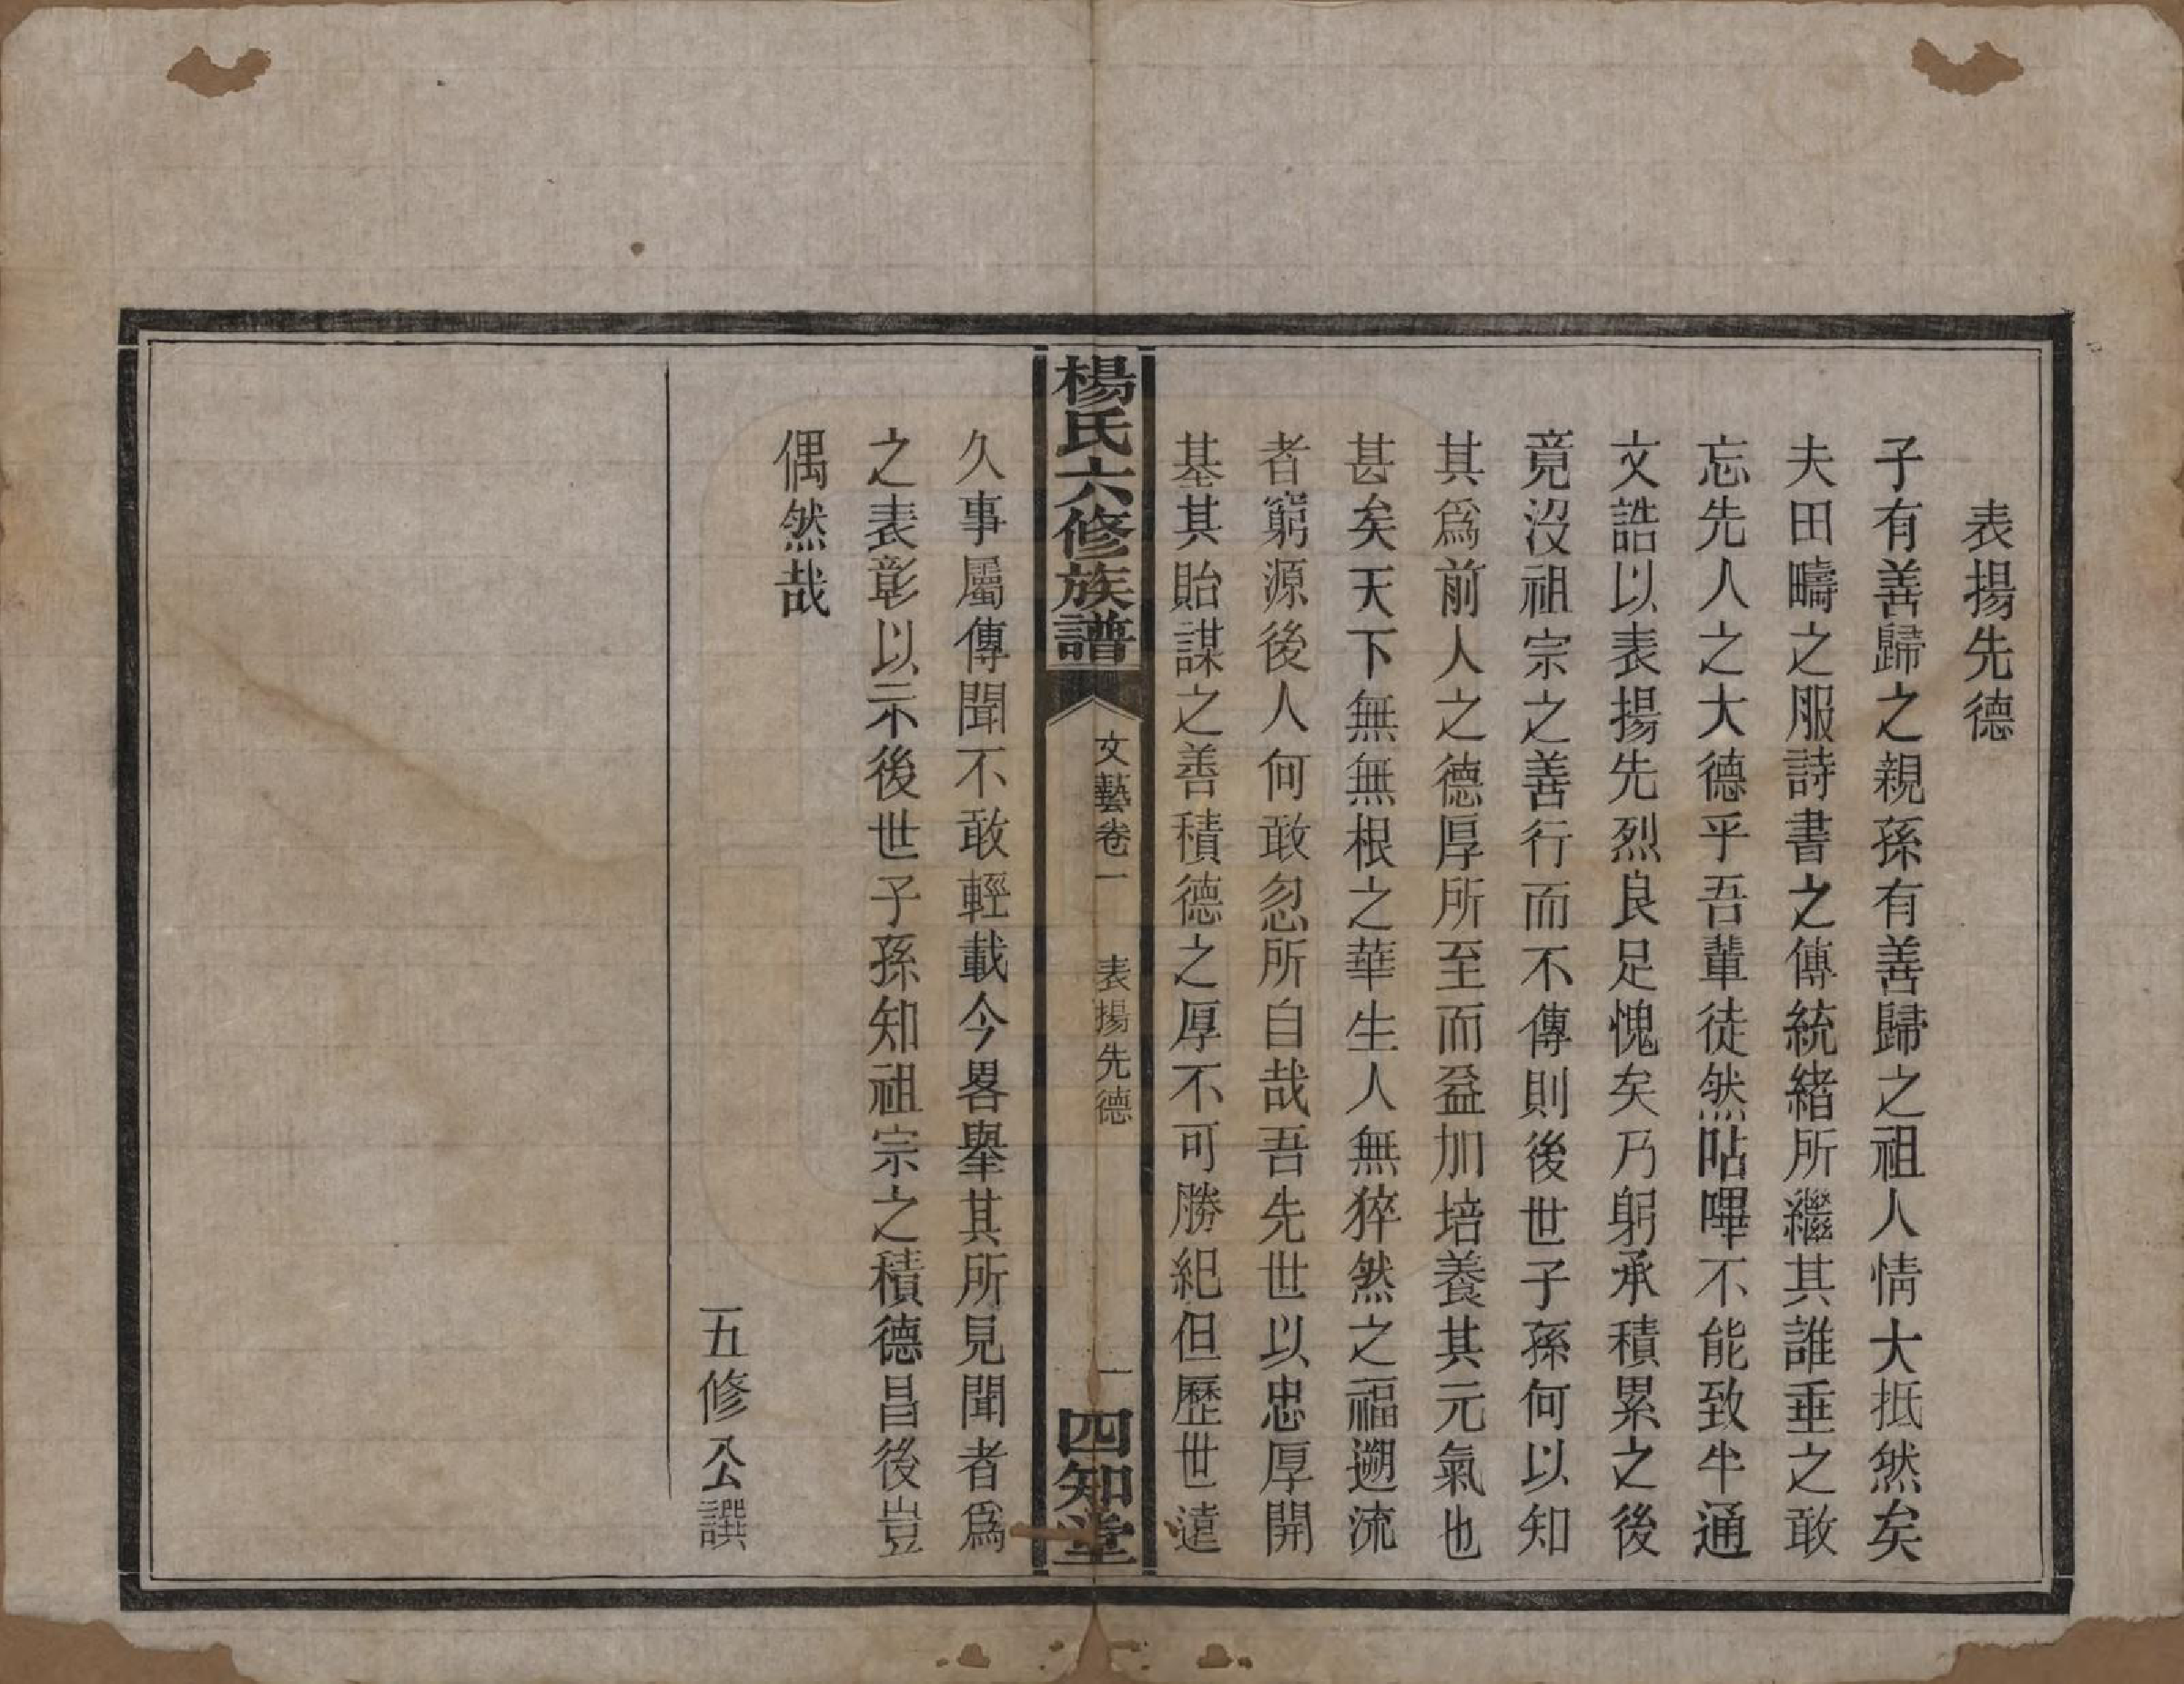 表揚先德
子有善歸之親孫有善歸之祖人情大抵然矣
夫田疇之服詩書之傳統緒所繼其誰垂之敢
忘先人之大德乎吾輩徒然呫嗶不能致牛通
文誥以表揚先烈良足愧矣乃躬承積累之後
竟沒祖宗之善行而不傳則後世子孫何以知
其爲前人之德厚所至而益加培養其元氣也
甚矣天下無無根之華生人無猝然之福遡流
者窮源後人何敢忽所自哉吾先世以忠厚開
基其貽謀之善積德之厚不可勝紀但歷世遠
楊氏六修族譜
文藝卷一
表揚先德
一
四知堂
久事屬傳聞不敢輕載今畧舉其所見聞者爲
之表彰以示後世子孫知祖宗之積德昌後豈
偶然哉
五修公譔